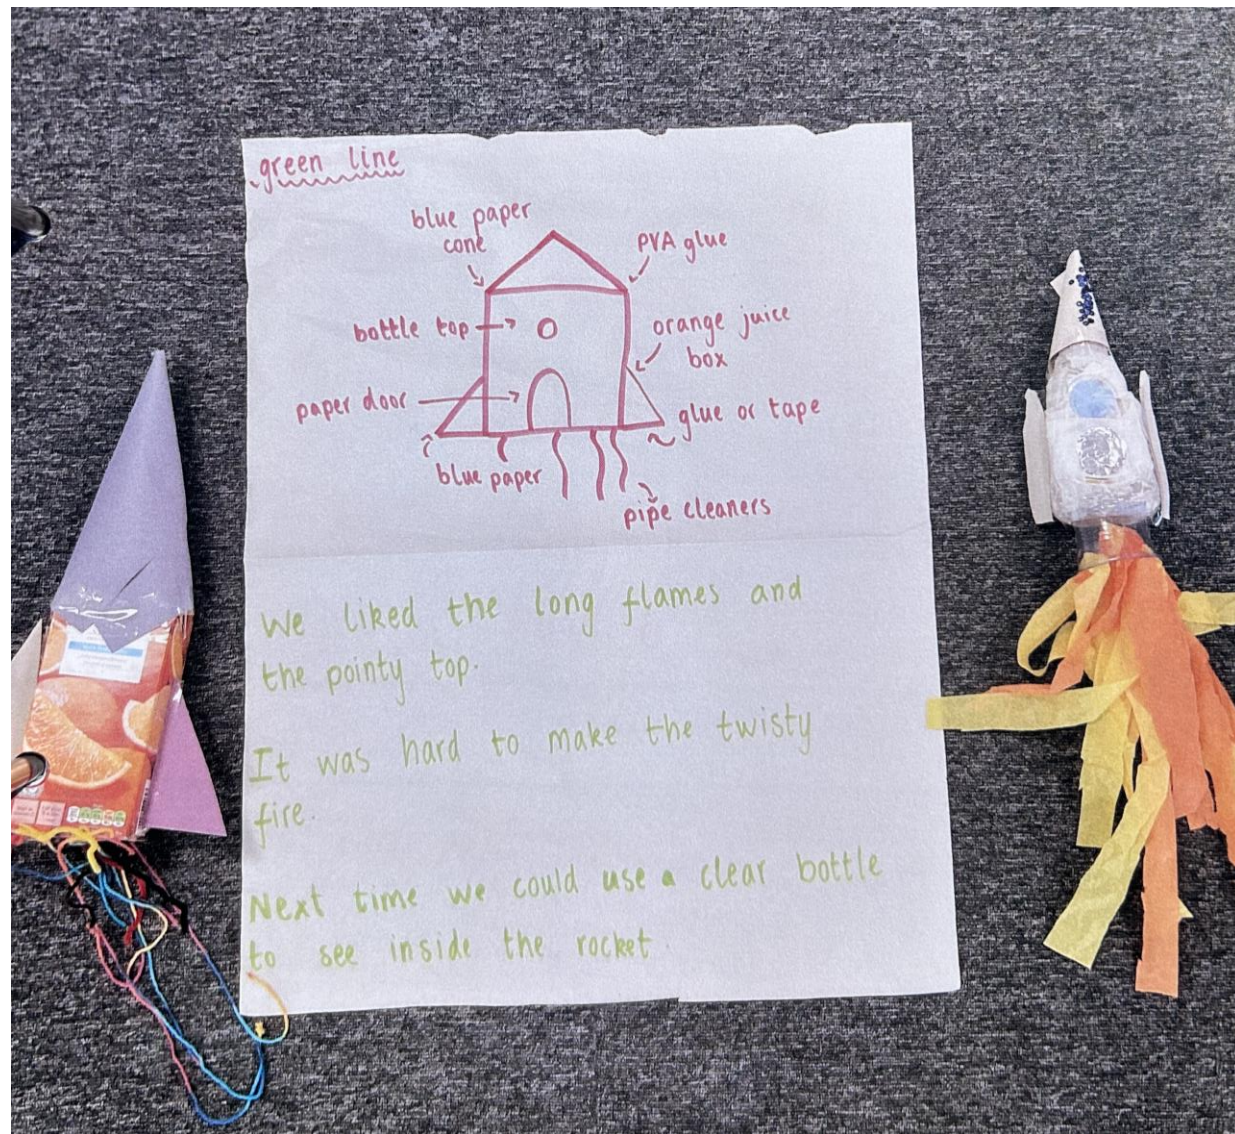 green line
blue paper
cone
PVA glue
bottle top
orange juice
box
paper door
glue or tape
blue paper
pipe cleaners
We liked the long flames and
the pointy top.
It was hard to make the twisty
fire.
Next time we could use a clear bottle
to see inside the rocket.